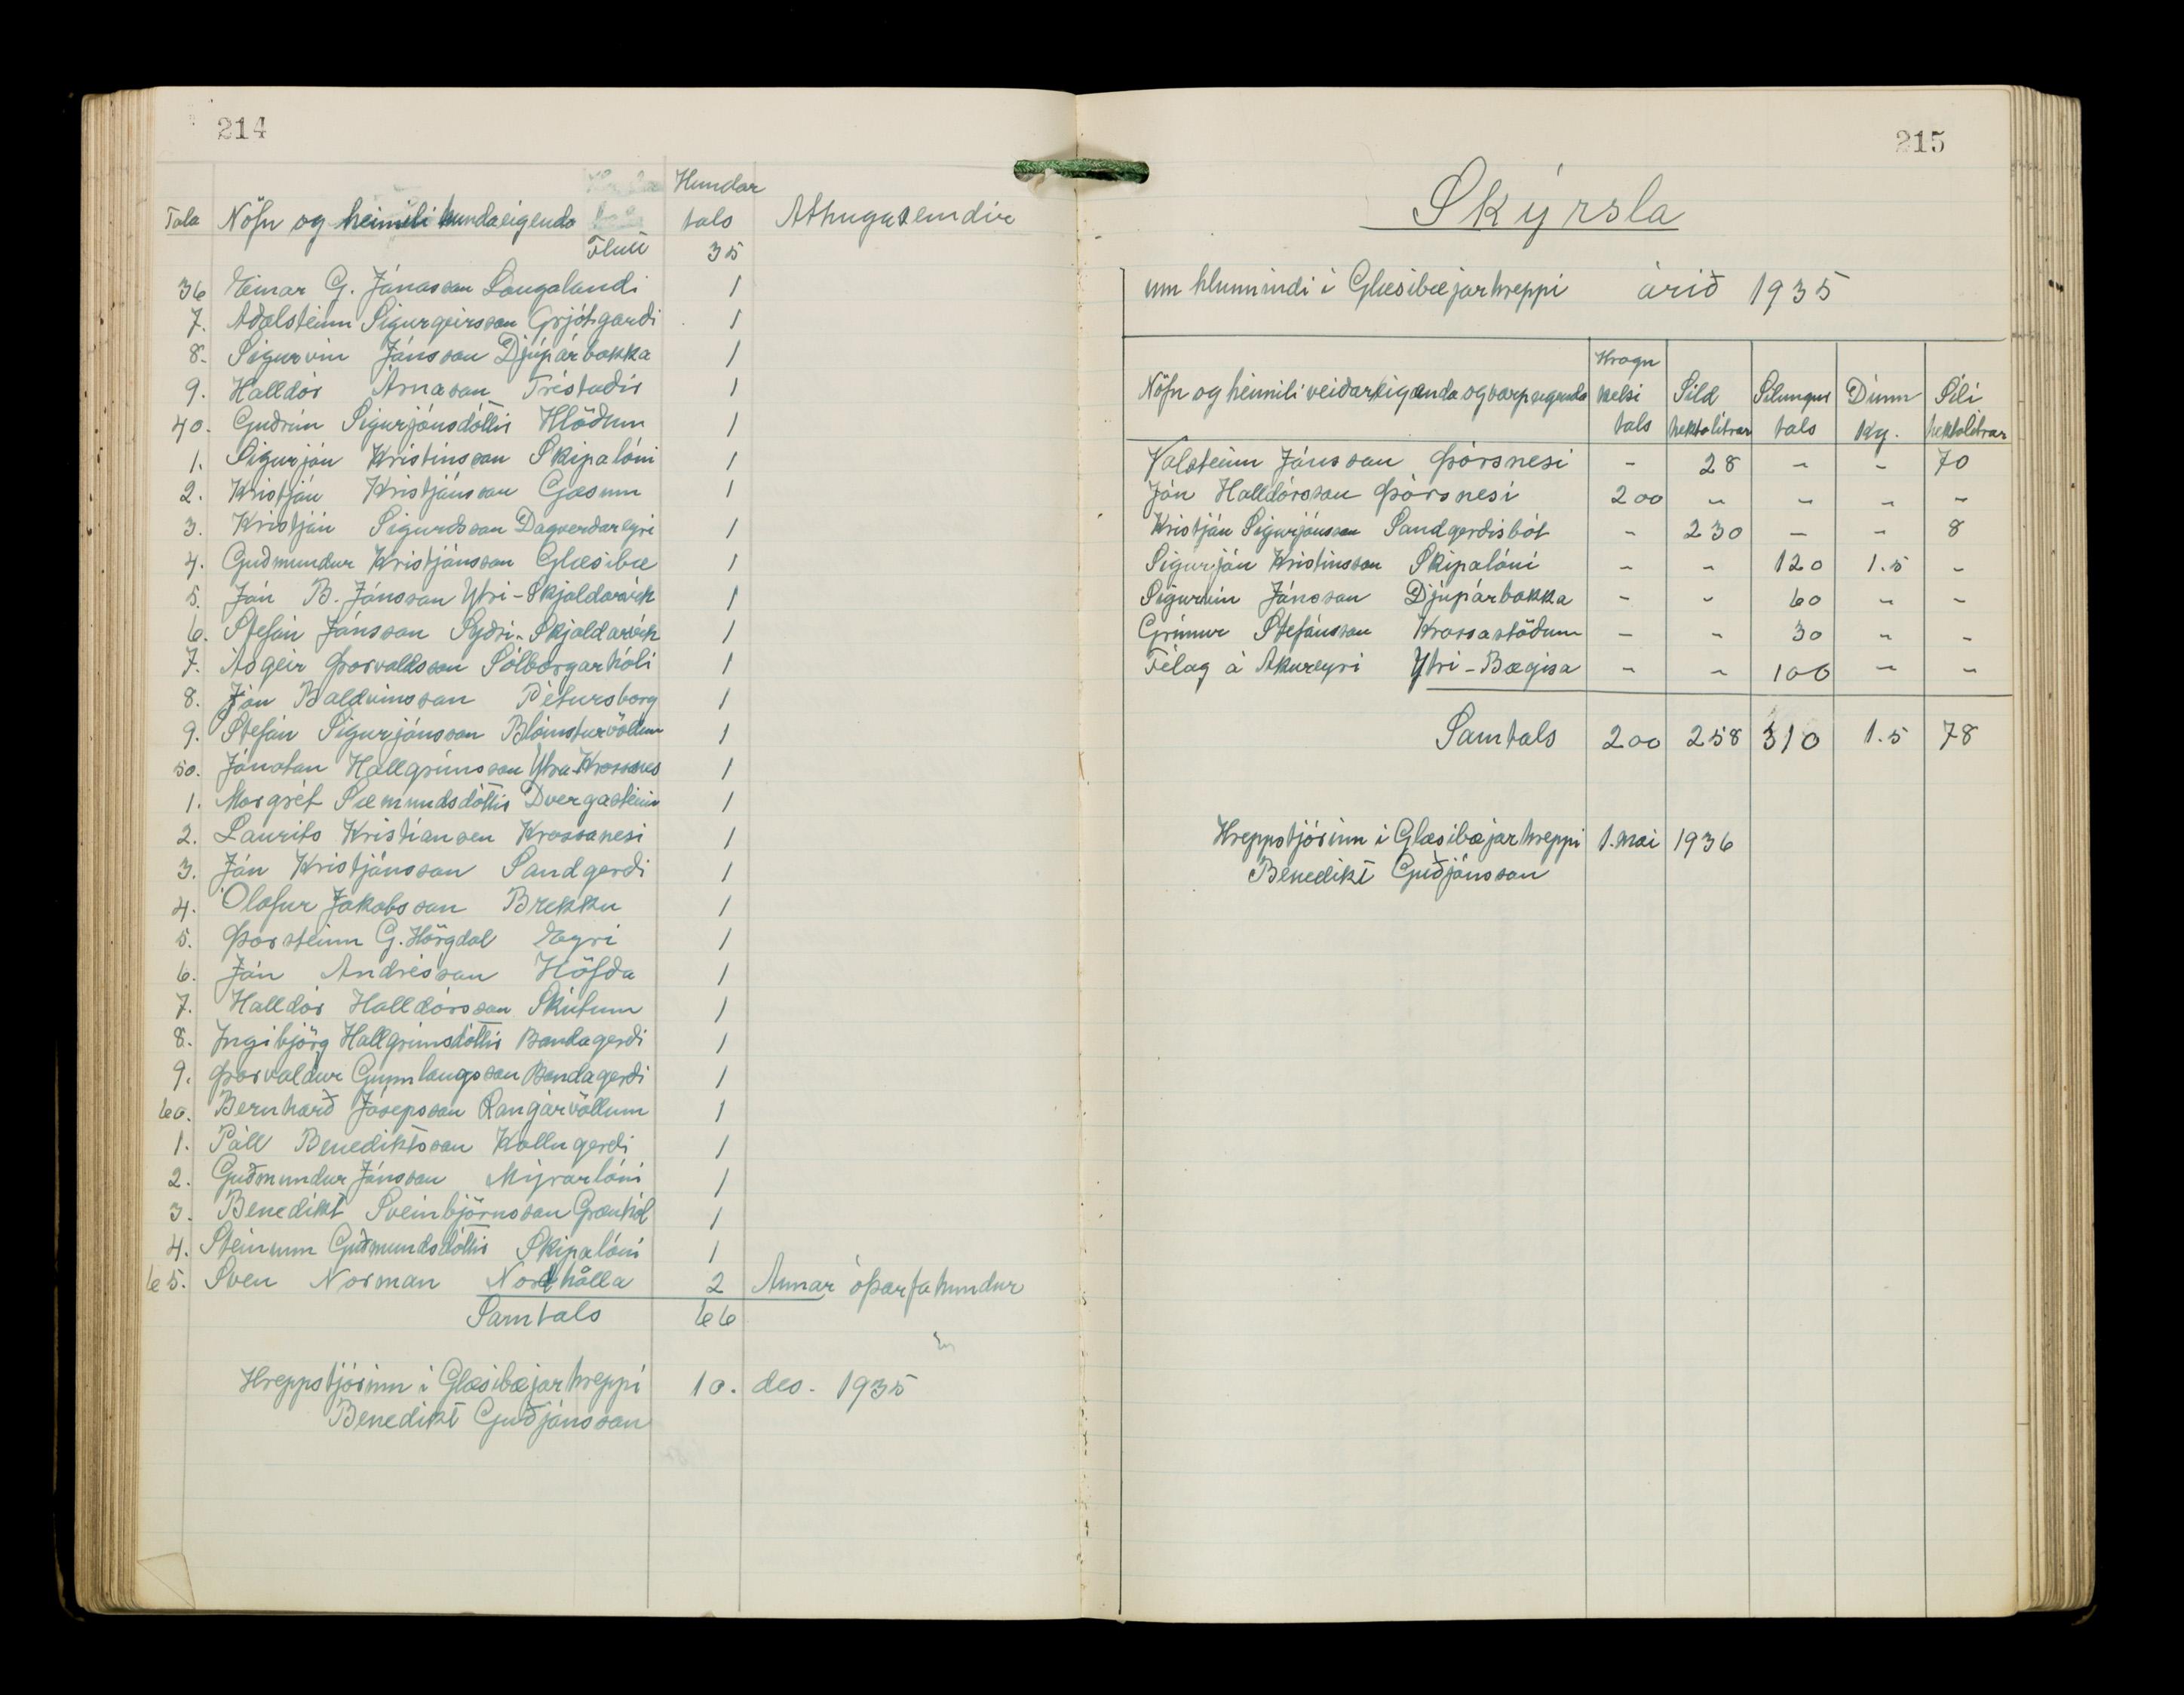 214
Hundar
Tala Nöfn og heimili hundaeigenda tals Athugasemdir
Flutt 35
36 Einar G. Jónasson Laugalandi 1
7. Aðalsteinn Sigurgeirsson Grjótgarði 1
8. Sigurvin Jónsson Djúpárbakka 1
9. Halldór Árnason Tréstaðir 1
40. Guðrún Sigurjónsdóttir Hlöðum 1
1. Sigurjón Kristinsson Skipalóni 1
2. Kristján Kristjánsson Gæsum 1
3. Kristján Sigurðsson Dagverðareyri 1
4. Guðmundur Kristjánsson Glæsibæ 1
5. Jón B. Jónsson Ytri-Skjaldarvík 1
6. Stefán Jónsson Syðri-Skjaldarvík 1
7. Ásgeir Þorvaldsson Sólborgarhóli 1
8. Jón Baldvinsson Pétursborg 1
9. Stefán Sigurjónsson Blómsturvöllum 1
50. Jónatan Hallgrímsson Ytra-Krossanes 1
1. Margrét Sæmundsdóttir Dvergasteini 1
2. Laurits Kristiansen Krossanesi 1
3. Jón Kristjánsson Sandgerði 1
4. Ólafur Jakobsson Brekku 1
5. Þorsteinn G. Hörgdal Eyri 1
6. Jón Andrésson Höfða 1
7. Halldór Halldórsson Skútum 1
8. Ingibjörg Hallgrímsdóttir Bandagerði 1
9. Þorvaldur Gunnlaugsson Bandagerði 1
60. Bernharð Jósepsson Rangárvöllum 1
1. Páll Benediktsson Kollugerði 1
2. Guðmundur Jónsson Mýrarlóni 1
3. Benedikt Sveinbjörnsson Grænhól 1
4. Steinunn Guðmundsdóttir Skipalóni 1
65. Sven Norman Nordhålla 2 Annar óþarfahundur
Samtals 66
Hreppstjórinn í Glæsibæjarhreppi 10. des. 1935
Benedikt Guðjónsson
215
Skýrsla
um hlunnindi í Glæsibæjarhreppi árið 1935
Hrogn
Nöfn og heimili veiðareiganda og varpeigenda kelsi Síld Silungur Dúnn Síli
tals hektolítrar tals kg. hektolítrar
Valsteinn Jónsson Þórsnesi - 28 - - 70
Jón Halldórsson Þórsnesi 200 - - - -
Kristján Sigurjónsson Sandgerðisbót - 230 - - 8
Sigurjón Kristinsson Skipalóni - - 120 1.5 -
Sigurvin Jónsson Djúpárbakka - - 60 - -
Grímur Stefánsson Krossastöðum - - 30 - -
Félag á Akureyri Ytri-Bægisa - - 100 - -
Samtals 200 258 310 1.5 78
Hreppstjórinn í Glæsibæjarhreppi 1. mai 1936
Benedikt Guðjónsson